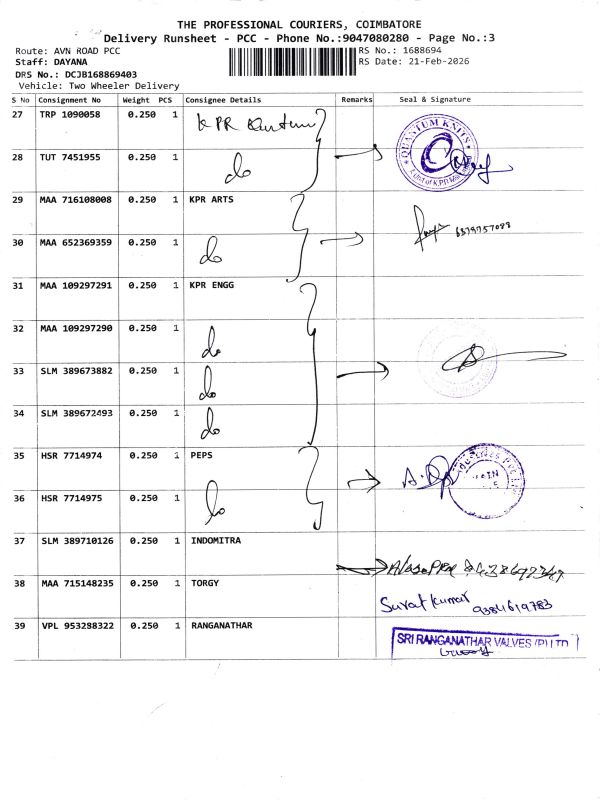 THE PROFESSIONAL COURIERS, COIMBATORE
Delivery Runsheet - PCC - Phone No.:9047080280 - Page No.:3
Route: AVN ROAD PCC
RS No.: 1688694
Staff: DAYANA
RS Date: 21-Feb-2026
DRS No.: DCJB168869403
Vehicle: Two Wheeler Delivery
S No Consignment No Weight PCS Consignee Details Remarks Seal & Signature
27 TRP 1090058 0.250 1 KPR Quantum
QUANTUM KNITS
28 TUT 7451955 0.250 1 do
29 MAA 716108008 0.250 1 KPR ARTS
6379757088
30 MAA 652369359 0.250 1 do
31 MAA 109297291 0.250 1 KPR ENGG
32 MAA 109297290 0.250 1 do
33 SLM 389673882 0.250 1 do
34 SLM 389672493 0.250 1 do
35 HSR 7714974 0.250 1 PEPS
36 HSR 7714975 0.250 1 do
37 SLM 389710126 0.250 1 INDOMITRA
38 MAA 715148235 0.250 1 TORGY
Surat Kumar 9384619783
39 VPL 953288322 0.250 1 RANGANATHAR
SRI RANGANATHAR VALVES (P) LTD